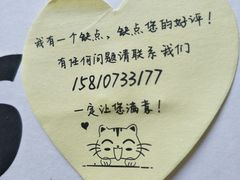 我有一个缺点，缺点您的好评！
有任何问题请联系我们
15810733177
一定让您满意！